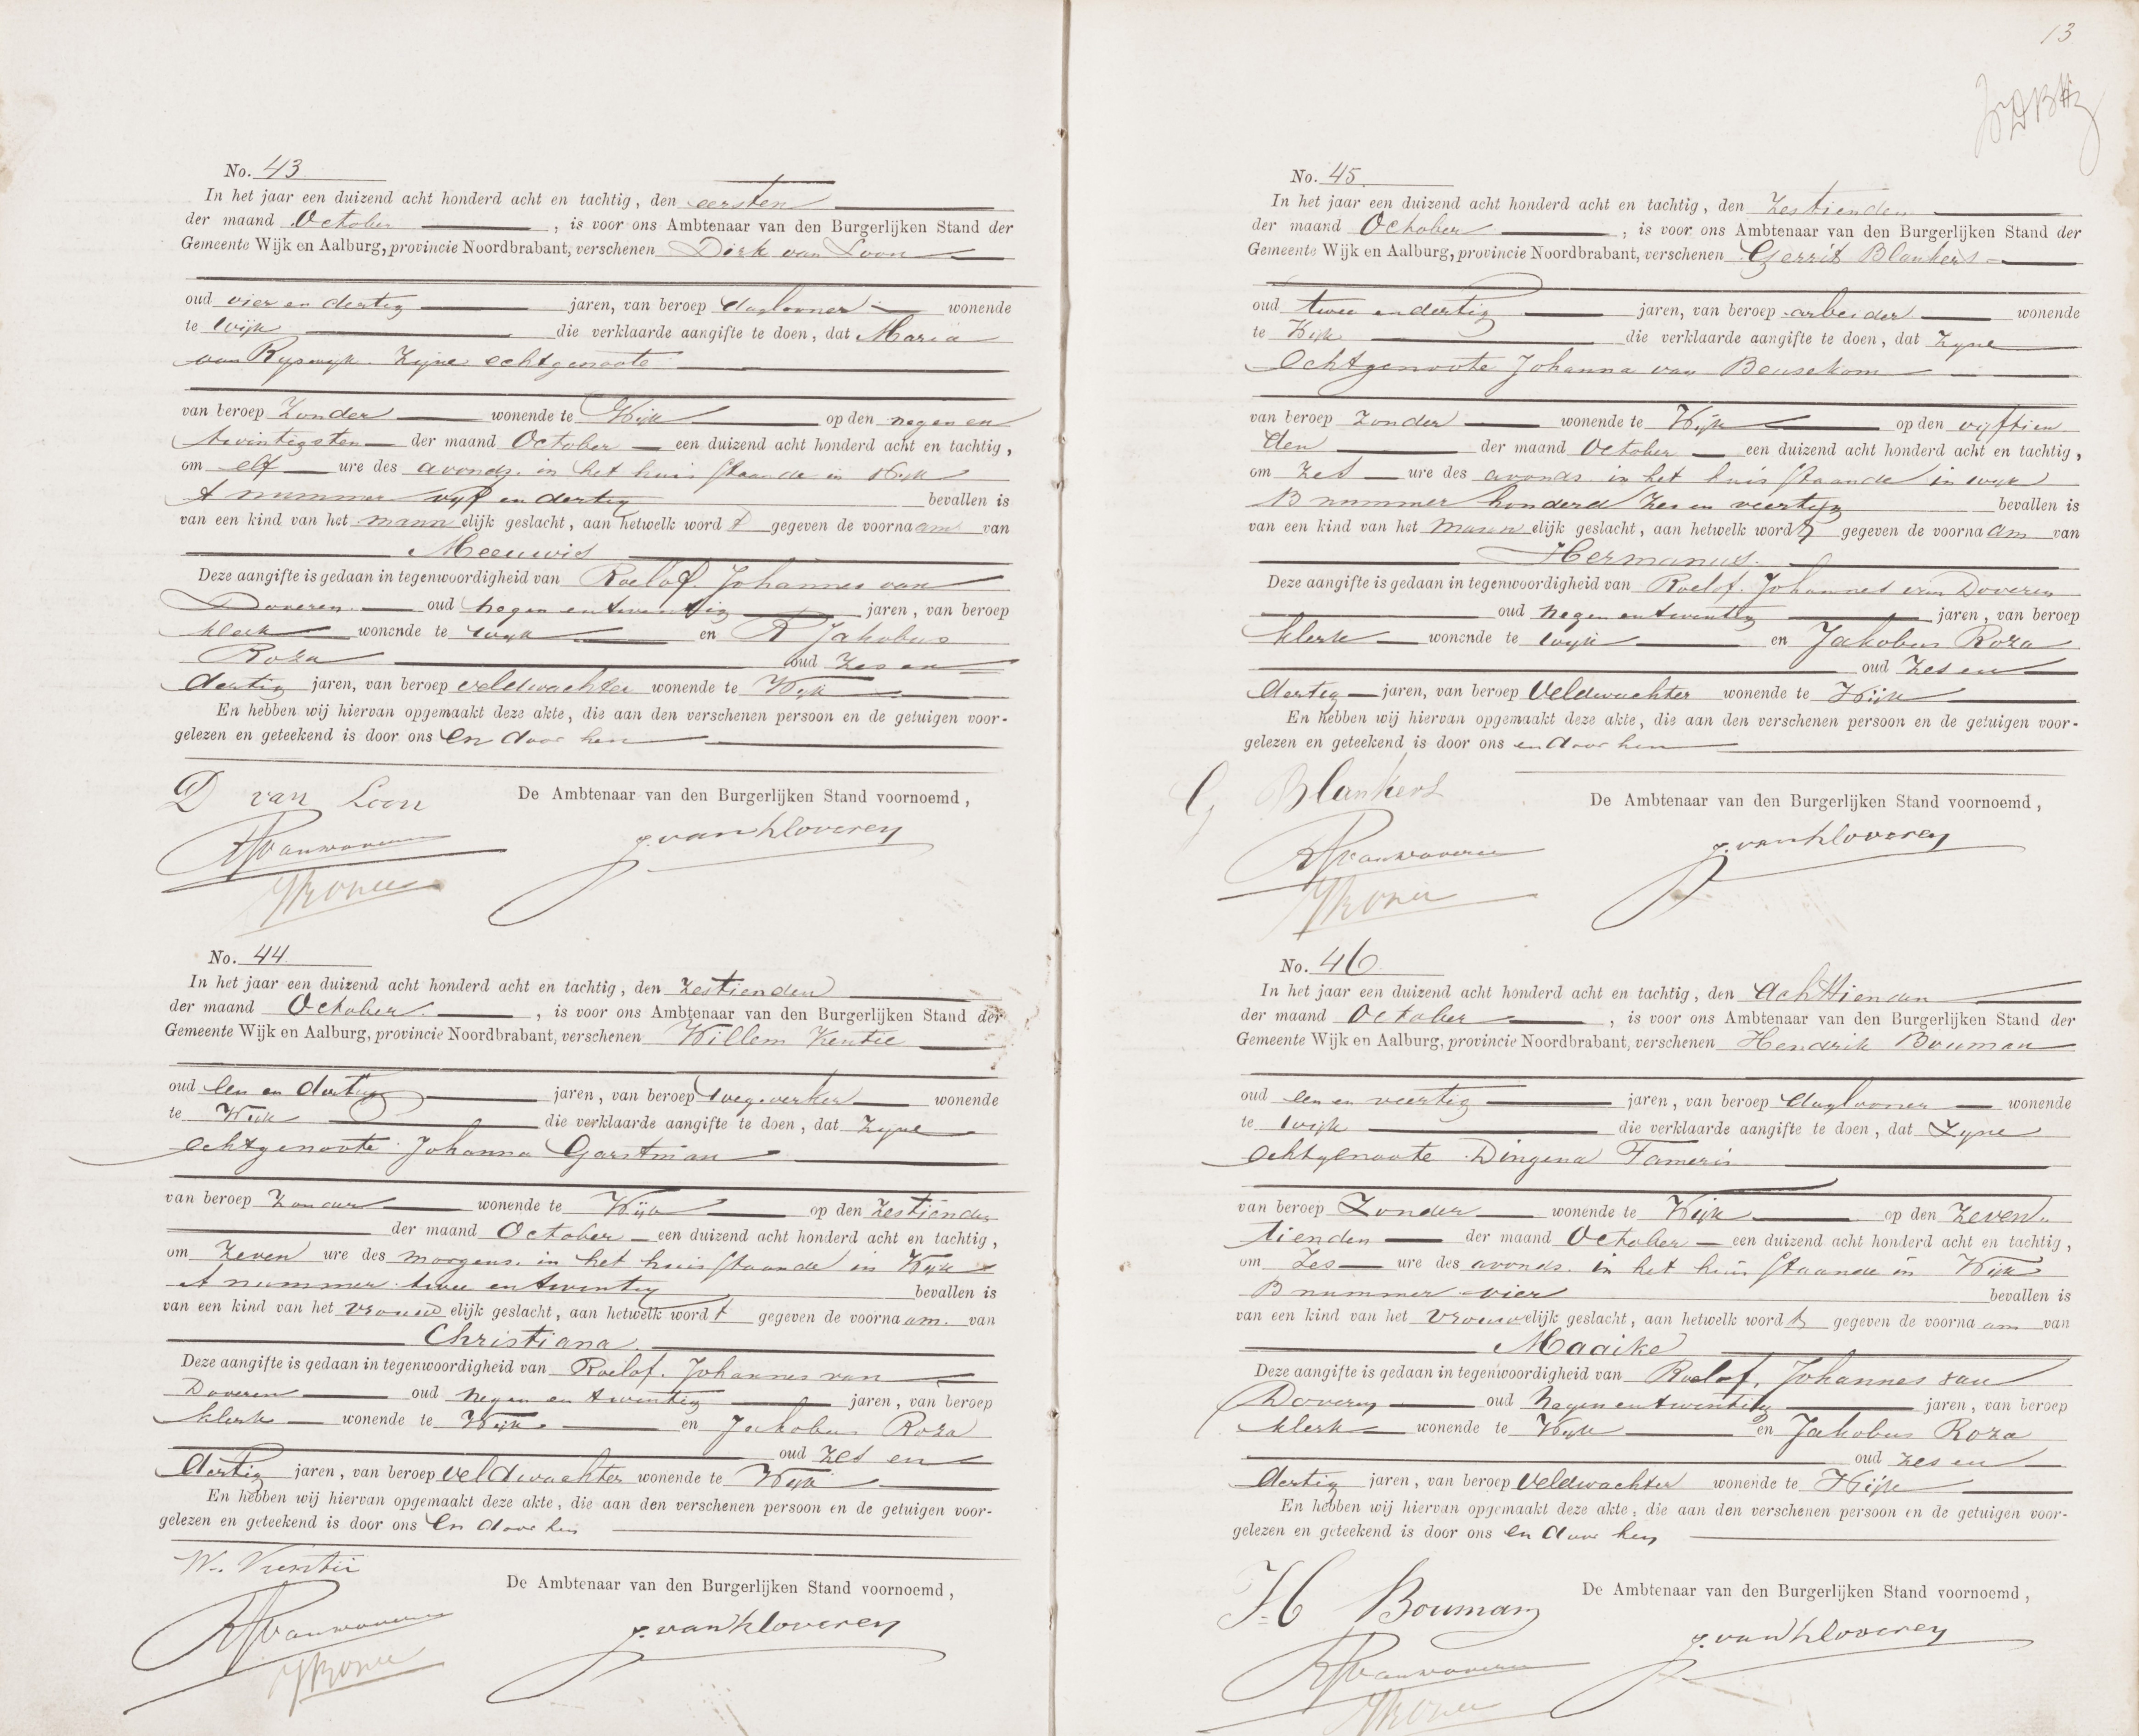 No. 43
In het jaar een duizend acht honderd acht en tachtig, den eersten
der maand October, is voor ons Ambtenaar van den Burgerlijken Stand der
Gemeente Wijk en Aalburg, provincie Noordbrabant, verschenen Dirk van Loon
oud vier en dertig jaren, van beroep daglooner wonende
te Wijk die verklaarde aangifte te doen, dat Maria
van Rijswijk Zijne echtgenoote
van beroep Zonder wonende te Wijk op den negen en
twintigsten der maand October een duizend acht honderd acht en tachtig,
om elf ure des avonds in het huis staande in Wijk
A nummer vijf en dertig bevallen is
van een kind van het mannelijk geslacht, aan hetwelk wordt gegeven de voornaam van
Meeuwis
Deze aangifte is gedaan in tegenwoordigheid van Roelof Johannes van
Doveren oud negen en twintig jaren, van beroep
klerk wonende te Wijk en R Jakobus
Roza oud zes en
dertig jaren, van beroep veldwachter wonende te Wijk
En hebben wij hiervan opgemaakt deze akte, die aan den verschenen persoon en de getuigen voor-
gelezen en geteekend is door ons en door hen
D van Loon
De Ambtenaar van den Burgerlijken Stand voornoemd,
No. 44
In het jaar een duizend acht honderd acht en tachtig, den Zestienden
der maand October, is voor ons Ambtenaar van den Burgerlijken Stand der
Gemeente Wijk en Aalburg, provincie Noordbrabant, verschenen Willem
oud een en dertig jaren, van beroep wegwerker wonende
te Wijk die verklaarde aangifte te doen, dat Zijne
echtgenoote Johanna Garstman
van beroep Zonder wonende te Wijk op den Zestienden
der maand October een duizend acht honderd acht en tachtig,
om Zeven ure des morgens in het huis staande in Wijk
A nummer twee en twintig bevallen is
van een kind van het vrouwelijk geslacht, aan hetwelk wordt gegeven de voornaam van
Christiana
Deze aangifte is gedaan in tegenwoordigheid van Roelof Johannes van
Doveren oud negen en twintig jaren, van beroep
klerk wonende te Wijk en Jakobus Roza
oud zes en
dertig jaren, van beroep veldwachter wonende te Wijk
En hebben wij hiervan opgemaakt deze akte, die aan den verschenen persoon en de getuigen voor-
gelezen en geteekend is door ons en door hen
De Ambtenaar van den Burgerlijken Stand voornoemd,
13
No. 45
In het jaar een duizend acht honderd acht en tachtig, den Zestienden
der maand October, is voor ons Ambtenaar van den Burgerlijken Stand der
Gemeente Wijk en Aalburg, provincie Noordbrabant, verschenen Gerrit Blankers
oud twee en dertig jaren, van beroep arbeider wonende
te Wijk die verklaarde aangifte te doen, dat Zijne
echtgenoote Johanna van Beusekom
van beroep Zonder wonende te Wijk op den vijftien
den der maand October een duizend acht honderd acht en tachtig,
om Zes ure des avonds in het huis staande in Wijk
B nummer honderd Zes en veertig bevallen is
van een kind van het mannelijk geslacht, aan hetwelk wordt gegeven de voornaam van
Hermanus
Deze aangifte is gedaan in tegenwoordigheid van Roelof Johannes van Doveren
oud negen en twintig jaren, van beroep
klerk wonende te Wijk en Jakobus Roza
oud Zes en
dertig jaren, van beroep veldwachter wonende te Wijk
En hebben wij hiervan opgemaakt deze akte, die aan den verschenen persoon en de getuigen voor-
gelezen en geteekend is door ons en door hen
G Blankers
De Ambtenaar van den Burgerlijken Stand voornoemd,
No. 46
In het jaar een duizend acht honderd acht en tachtig, den Achttienden
der maand October, is voor ons Ambtenaar van den Burgerlijken Stand der
Gemeente Wijk en Aalburg, provincie Noordbrabant, verschenen Hendrik Bouman
oud een en veertig jaren, van beroep daglooner wonende
te Wijk die verklaarde aangifte te doen, dat Zijne
echtgenoote Dingena Tameris
van beroep Zonder wonende te Wijk op den Zeven
tienden der maand October een duizend acht honderd acht en tachtig,
om Zes ure des avonds in het huis staande in Wijk
B nummer vier bevallen is
van een kind van het vrouwelijk geslacht, aan hetwelk wordt gegeven de voornaam van
Maaike
Deze aangifte is gedaan in tegenwoordigheid van Roelof Johannes van
Doveren oud negen en twintig jaren, van beroep
klerk wonende te Wijk en Jakobus Roza
oud zes en
dertig jaren, van beroep veldwachter wonende te Wijk
En hebben wij hiervan opgemaakt deze akte, die aan den verschenen persoon en de getuigen voor-
gelezen en geteekend is door ons en door hen
H Bouman
De Ambtenaar van den Burgerlijken Stand voornoemd,